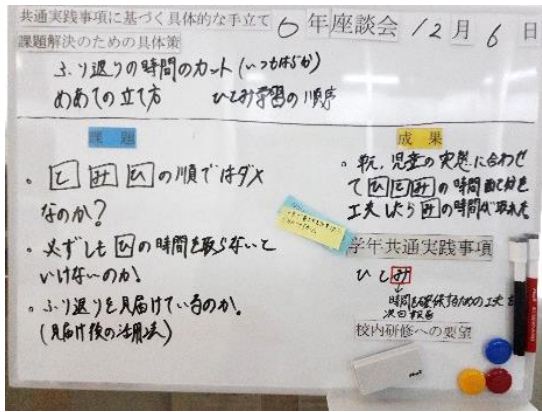 共通実践事項に基づく具体的な手立て
課題解決のための具体策
6年座談会 12月6日
ふり返りの時間のカット(いつもはら分)
めあての立て方 ひとみ学習の順序
課題
。と み ひ の順ではダメ
なのか?
。必ずしもひの時間を取らないと
いけないのか。
。ふり返りを見届けているのか。
(見届け後の活用法)
成果
児童の実態に合わせ
て ひ と み の時間配分を
工夫したらみの時間が取れた
学年共通実践事項
ひとみ
時間を確保するための工夫を
次回報告
校内研修への要望